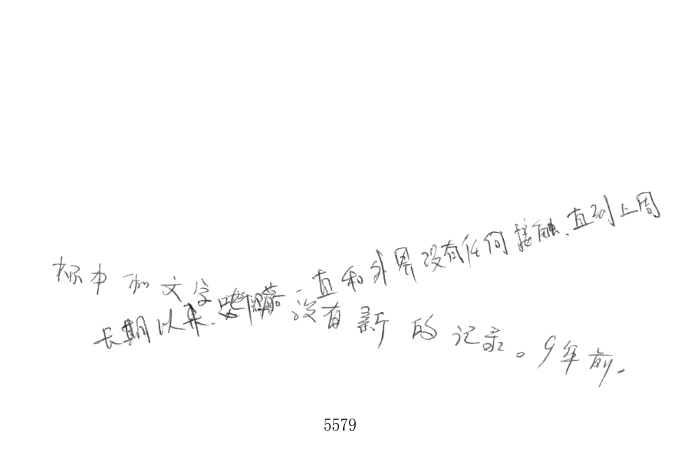 标本和文字一直和外界没有任何接触,直到上周
长期以来,没有新的记录。9年前,
5579